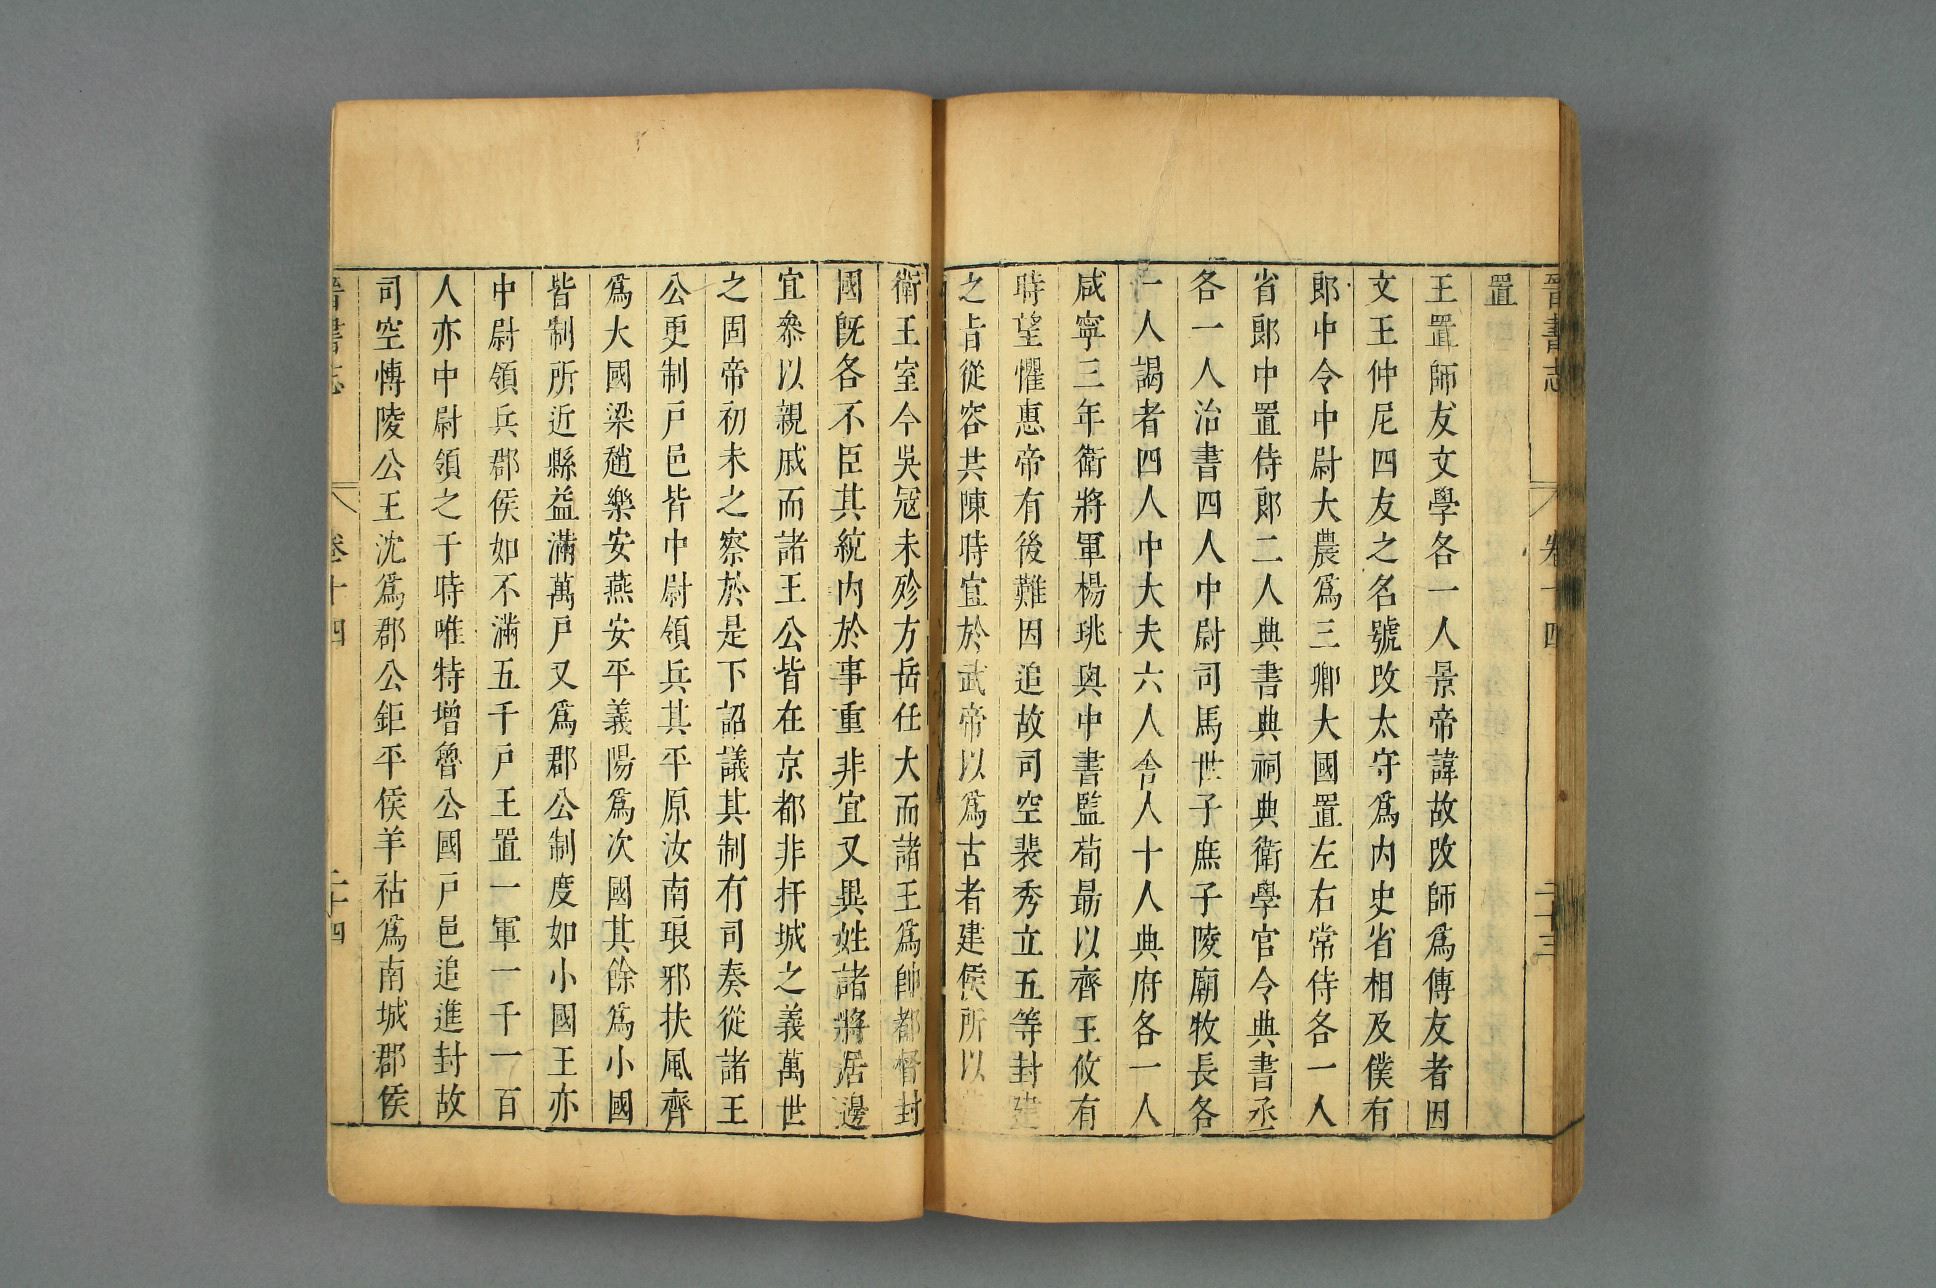 晉書志 卷十四 二十三
置
王置師友文學各一人景帝諱故改師爲傅友者因
文王仲尼四友之名號改太守爲內史省相及僕有
郎中令中尉大農爲三卿大國置左右常侍各一人
省郎中置侍郎二人典書典祠典衛學官令典書丞
各一人治書四人中尉司馬世子庶子陵廟牧長各
一人謁者四人中大夫六人舍人十人典府各一人
咸寧三年衛將軍楊珧與中書監荀勗以齊王攸有
時望懼惠帝有後難因追故司空裴秀立五等封建
之旨從容共陳時宜於武帝以爲古者建侯所以
衛王室今吳寇未殄方岳任大而諸王爲帥都督封
國既各不臣其統內於事重非宜又異姓諸將居邊
宜參以親戚而諸王公皆在京都非扞城之義萬世
之固帝初未之察於是下詔議其制有司奏從諸王
公更制戶邑皆中尉領兵其平原汝南琅邪扶風齊
爲大國梁趙樂安燕安平義陽爲次國其餘爲小國
皆制所近縣益滿萬戶又爲郡公制度如小國王亦
中尉領兵郡侯如不滿五千戶王置一軍一千一百
人亦中尉領之于時唯特增魯公國戶邑追進封故
司空博陵公王沈爲郡公鉅平侯羊祜爲南城郡侯
晉書志 卷十四 二十四